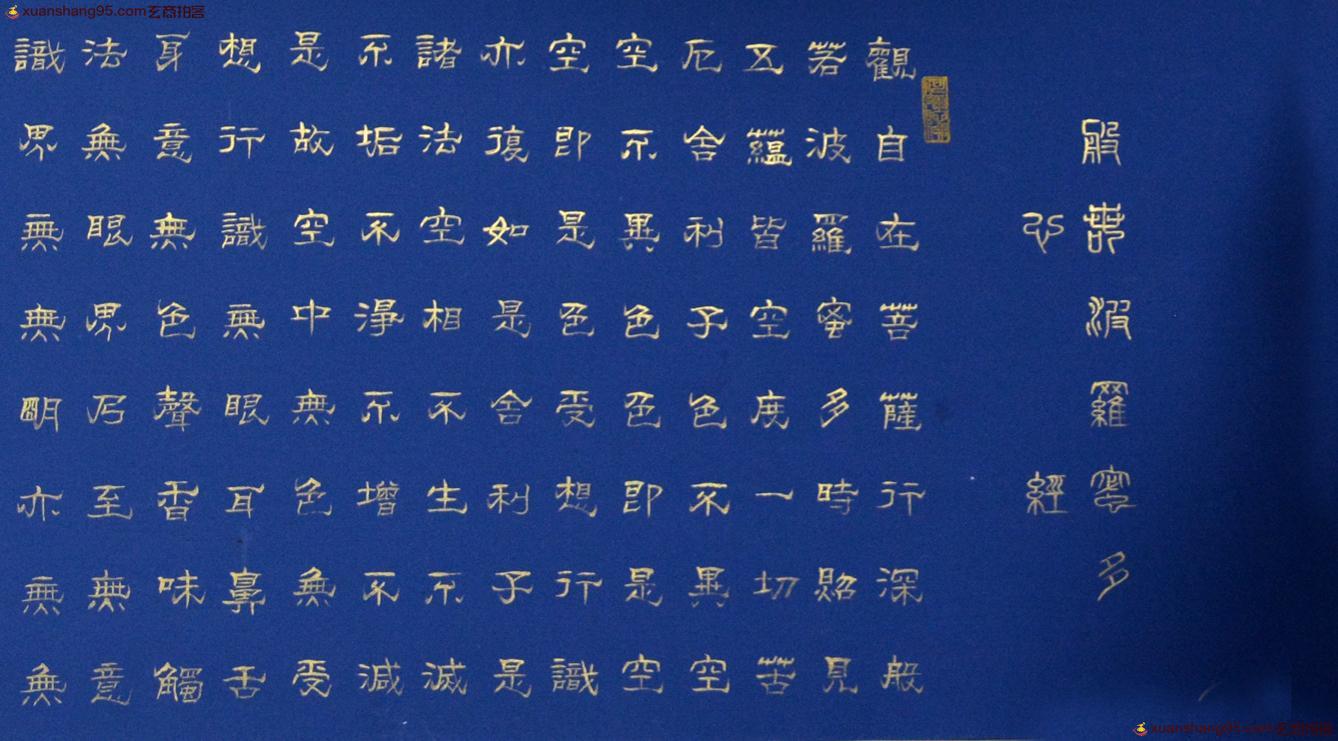 xuanshang95.com玄商拍客
般若波羅蜜多
心經
觀自在菩薩行深般
若波羅蜜多時照見
五蘊皆空度一切苦
厄舍利子色不異空
空不異色色即是空
空即是色受想行識
亦復如是舍利子是
諸法空相不生不滅
不垢不淨不增不減
是故空中無色無受
想行識無眼耳鼻舌
身意無色聲香味觸
法無眼界乃至無意
識界無無明亦無無
xuanshang95.com玄商拍客